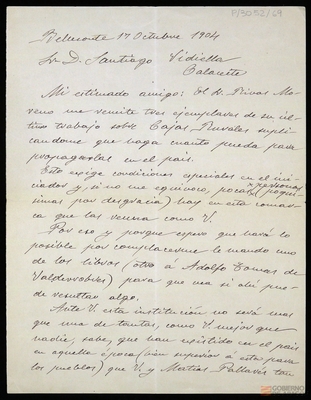 P/3052/69
Belmonte 17 Octubre 1904
Sr. D. Santiago Vidiella
Calaceite
Mi estimado amigo: El Sr. Rivas Mo-
reno me remite tres ejemplares de su úl-
timo trabajo sobre Cajas Rurales supli-
candome que haga cuanto pueda para
propagarlas en el país.
Esto exige condiciones especiales en el ini-
ciador y, si no me equivoco, pocas personas (poquí-
simas por desgracia) hay en esta comar-
ca que las reuna como V.
Por eso y porque espero que hará lo
posible por complacerme le mando uno
de los libros (otro á Adolfo Tomas de
Valderrobres) para que vea si ahí pue-
de resultar algo.
Ante V. esta institución no será mas
que una de tantas, como V. mejor que
nadie, sabe, que han existido en el país
en aquella época (bien superior á esta para
los pueblos) que V. y Matías Pallarés tan
GOBIERNO